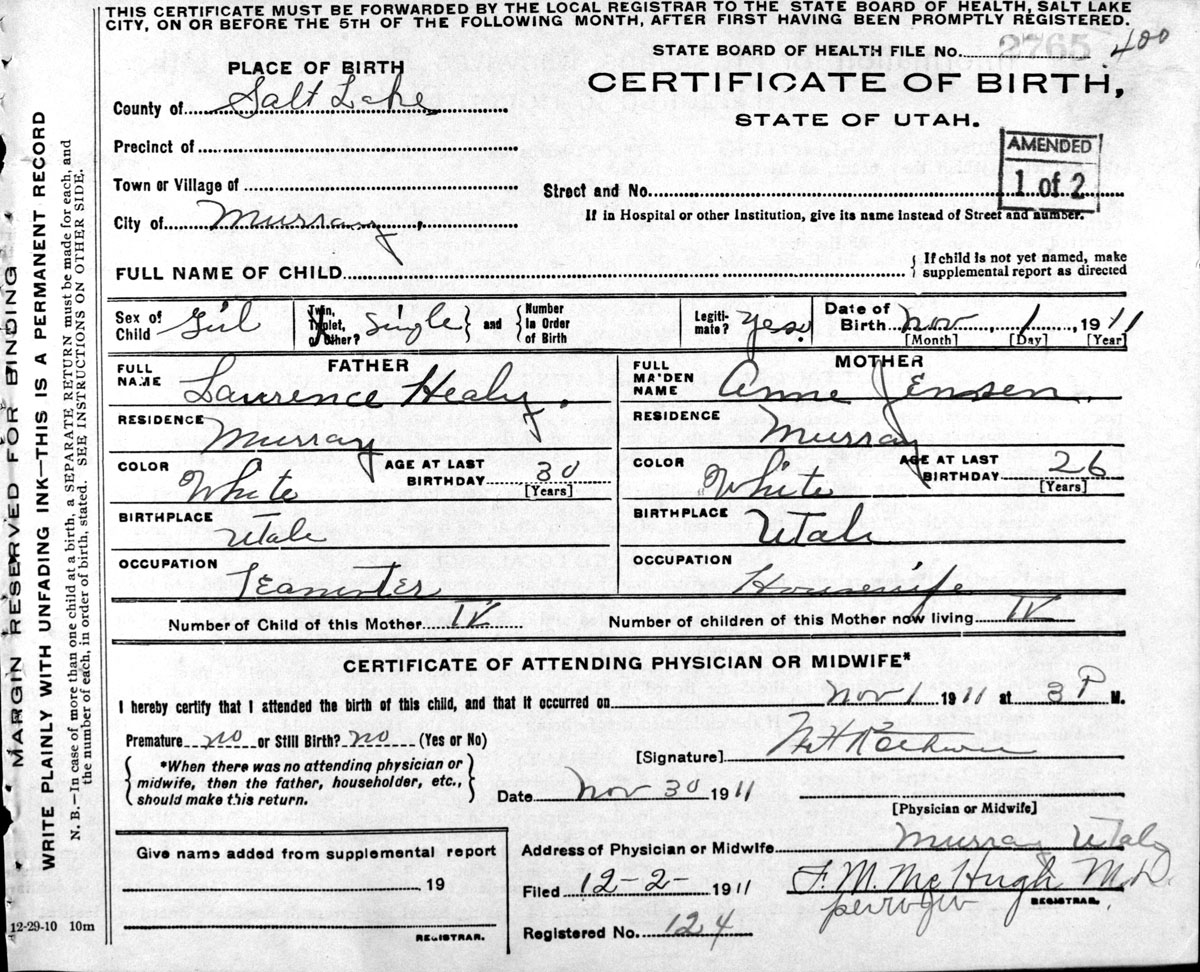 THIS CERTIFICATE MUST BE FORWARDED BY THE LOCAL REGISTRAR TO THE STATE BOARD OF HEALTH, SALT LAKE
CITY, ON OR BEFORE THE 5TH OF THE FOLLOWING MONTH, AFTER FIRST HAVING BEEN PROMPTLY REGISTERED.
STATE BOARD OF HEALTH FILE No. 2765 400
PLACE OF BIRTH
CERTIFICATE OF BIRTH,
County of Salt Lake
STATE OF UTAH.
AMENDED
1 of 2
Precinct of
Town or Village of
Street and No.
City of Murray,
If in Hospital or other Institution, give its name instead of Street and number.
FULL NAME OF CHILD
{ If child is not yet named, make
supplemental report as directed
Sex of Child Girl
Twin, Triplet, or Other? Single } and { Number in Order of Birth
Legitimate? Yes.
Date of Birth Nov, 1, 1911
[Month] [Day] [Year]
FATHER
MOTHER
FULL NAME Laurence Healy.
FULL MAIDEN NAME Anne Jensen.
RESIDENCE Murray
RESIDENCE Murray
COLOR White AGE AT LAST BIRTHDAY 30 [Years]
COLOR White AGE AT LAST BIRTHDAY 26 [Years]
BIRTHPLACE Utah
BIRTHPLACE Utah
OCCUPATION Teamster
OCCUPATION Housewife
Number of Child of this Mother IV
Number of children of this Mother now living IV
CERTIFICATE OF ATTENDING PHYSICIAN OR MIDWIFE*
I hereby certify that I attended the birth of this child, and that it occurred on Nov 1 1911 at 3 P M.
Premature no or Still Birth? no (Yes or No)
[Signature]
{ *When there was no attending physician or
midwife, then the father, householder, etc.,
should make this return. }
Date Nov 30 1911
[Physician or Midwife]
Give name added from supplemental report
, 19
REGISTRAR.
Address of Physician or Midwife Murray Utah
Filed 12-2- 1911 F. M. McHugh M.D.
REGISTRAR.
Registered No. 124
12-29-10 10m
MARGIN RESERVED FOR BINDING
WRITE PLAINLY WITH UNFADING INK—THIS IS A PERMANENT RECORD
N. B.—In case of more than one child at a birth, a SEPARATE RETURN must be made for each, and
the number of each, in order of birth, stated. SEE INSTRUCTIONS ON OTHER SIDE.